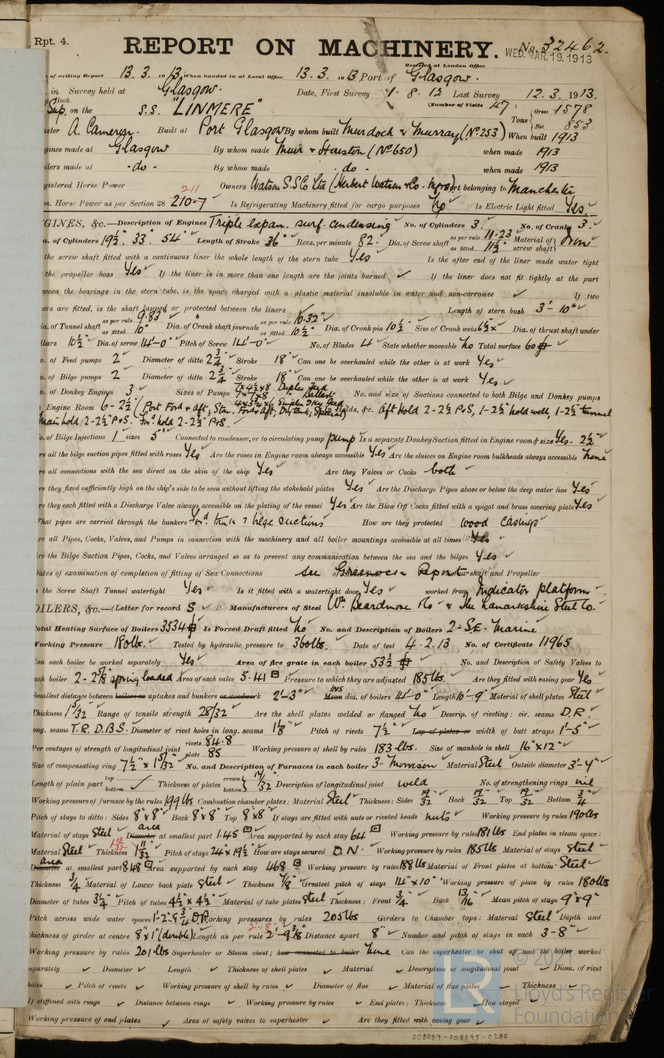 Rpt. 4.
REPORT ON MACHINERY.
No. 32462.
WED. MAR. 19. 1913
Received at London Office
of writing Report 13. 3. 1913. When handed in at Local Office 13. 3. 1913 Port of Glasgow.
in Survey held at Glasgow Date, First Survey 1. 8. 12 Last Survey 12. 3. 1913.
Book.
(Number of Visits 47)
Sup. on the S.S. "LINMERE" Tons Gross 1578 Net 853
A. Cameron. Built at Port Glasgow By whom built Murdoch & Murray (No 253) When built 1913
gines made at Glasgow By whom made Muir & Houston (No 650) when made 1913
ilers made at - do - By whom made - do - when made 1913
gistered Horse Power Owners Watson S.S. Co Ltd (Herbert Watson & Co. Mgrs) Port belonging to Manchester
211
m. Horse Power as per Section 28 210.7 Is Refrigerating Machinery fitted for cargo purposes No Is Electric Light fitted Yes.
GINES, &c.—Description of Engines Triple expan. surf. condensing No. of Cylinders 3. No. of Cranks 3.
a. of Cylinders 19½" 33" 54" Length of Stroke 36" Revs. per minute 82. Dia. of Screw shaft as per rule 11.23 as fitted 11½" Material of screw shaft Iron
the screw shaft fitted with a continuous liner the whole length of the stern tube Yes Is the after end of the liner made water tight
the propeller boss Yes If the liner is in more than one length are the joints burned If the liner does not fit tightly at the part
ween the bearings in the stern tube, is the space charged with a plastic material insoluble in water and non-corrosive If two
ers are fitted, is the shaft lapped or protected between the liners Length of stern bush 3'-10"
ia. of Tunnel shaft as per rule 9.83 as fitted 10" Dia. of Crank shaft journals as per rule 10.32 as fitted 10½" Dia. of Crank pin 10½" Size of Crank webs Dia. of thrust shaft under
llars 10½" Dia. of screw 14'-0" Pitch of Screw 14'-0" No. of Blades 4 State whether moveable No Total surface 60
o. of Feed pumps 2 Diameter of ditto 2¾" Stroke 18" Can one be overhauled while the other is at work Yes
o. of Bilge pumps 2 Diameter of ditto 2¾" Stroke 18" Can one be overhauled while the other is at work Yes
o. of Donkey Engines 3 Sizes of Pumps No. and size of Suctions connected to both Bilge and Donkey pumps
Engine Room 6-2½" In Holds, &c. Aft hold 2-2½" P&S, 1-2½" hold well 1-2½" tunnel
Main hold 2-2½" P&S. For'd hold 2-2½" P&S.
o. of Bilge Injections 1 sizes 5" Connected to condenser, or to circulating pump pump Is a separate Donkey Suction fitted in Engine room & size Yes. 2½"
re all the bilge suction pipes fitted with roses Yes Are the roses in Engine room always accessible Yes Are the sluices on Engine room bulkheads always accessible None
re all connections with the sea direct on the skin of the ship Yes Are they Valves or Cocks both
re they fixed sufficiently high on the ship's side to be seen without lifting the stokehold plates Yes Are the Discharge Pipes above or below the deep water line Yes
re they each fitted with a Discharge Valve always accessible on the plating of the vessel Yes Are the Blow Off Cocks fitted with a spigot and brass covering plate Yes
hat pipes are carried through the bunkers For'd tank & bilge suctions How are they protected wood casings
re all Pipes, Cocks, Valves, and Pumps in connection with the machinery and all boiler mountings accessible at all times Yes
re the Bilge Suction Pipes, Cocks, and Valves arranged so as to prevent any communication between the sea and the bilges Yes
ates of examination of completion of fitting of Sea Connections see Greenock Report shaft and Propeller
s the Screw Shaft Tunnel watertight Yes Is it fitted with a watertight door Yes worked from Indicator platform
OILERS, &c.—(Letter for record S) Manufacturers of Steel Wm Beardmore & Co & The Lanarkshire Steel Co.
otal Heating Surface of Boilers 3534 Is Forced Draft fitted No No. and Description of Boilers 2-S.E. Marine
orking Pressure 180lbs. Tested by hydraulic pressure to 360lbs. Date of test 4. 2. 13 No. of Certificate 11965
an each boiler be worked separately Yes Area of fire grate in each boiler 53½ No. and Description of Safety Valves to
ach boiler 2-2⅝" spring loaded Area of each valve 5.41 Pressure to which they are adjusted 185lbs. Are they fitted with easing gear Yes
mallest distance between boilers or uptakes and bunkers or woodwork 2'-3" Mean dia. of boilers 14'-0" Length 10'-9" Material of shell plates Steel
hickness 1 5/32 Range of tensile strength 28/32 Are the shell plates welded or flanged No Descrip. of riveting: cir. seams D.R.
ong. seams T.R.D.B.S. Diameter of rivet holes in long. seams 1⅛" Pitch of rivets 7½" Lap of plates or width of butt straps 1'-5"
er centages of strength of longitudinal joint rivets 84.8 plate 85 Working pressure of shell by rules 183 lbs. Size of manhole in shell 16"x12"
ize of compensating ring No. and Description of Furnaces in each boiler 3-Morrison Material Steel Outside diameter 3'-4"
ength of plain part top bottom Thickness of plates crown bottom 17/32 Description of longitudinal joint weld No. of strengthening rings nil
orking pressure of furnace by the rules 199 lbs Combustion chamber plates: Material Steel Thickness: Sides 19/32 Back 19/32 Top 19/32 Bottom ¾
itch of stays to ditto: Sides 8"x8" Back 8"x8" Top 8"x8" If stays are fitted with nuts or riveted heads nuts Working pressure by rules 190lbs
aterial of stays Steel area Diameter at smallest part 1.45 Area supported by each stay 64 Working pressure by rules 181lbs End plates in steam space:
aterial Steel Thickness 1 1/32 Pitch of stays 24x19½" How are stays secured D.N. Working pressure by rules 185lbs Material of stays Steel
area Diameter at smallest part Area supported by each stay 468 Working pressure by rules 188lbs Material of Front plates at bottom Steel
hickness ¾ Material of Lower back plate Steel Thickness Greatest pitch of stays 14"x10" Working pressure of plate by rules 180lbs
iameter of tubes 3¼" Pitch of tubes 4½"x4½" Material of tube plates Steel Thickness: Front ¾ Back 13/16 Mean pitch of stays 9"x9"
itch across wide water spaces Working pressures by rules 205lbs Girders to Chamber tops: Material Steel Depth and
hickness of girder at centre 8"x1" (double) Length as per rule Distance apart 8" Number and pitch of stays in each 3-8"
orking pressure by rules 201lbs Superheater or Steam chest; how connected to boiler None Can the superheater be shut off and the boiler worked
eparately Diameter Length Thickness of shell plates Material Description of longitudinal joint Diam. of rivet
holes Pitch of rivets Working pressure of shell by rules Diameter of flue Material of flue plates Thickness
f stiffened with rings Distance between rings Working pressure by rules End plates: Thickness How stayed
orking pressure of end plates Area of safety valves to superheater Are they fitted with easing gear
© 2021
Lloyd's Register
Foundation
008089-008095-0280